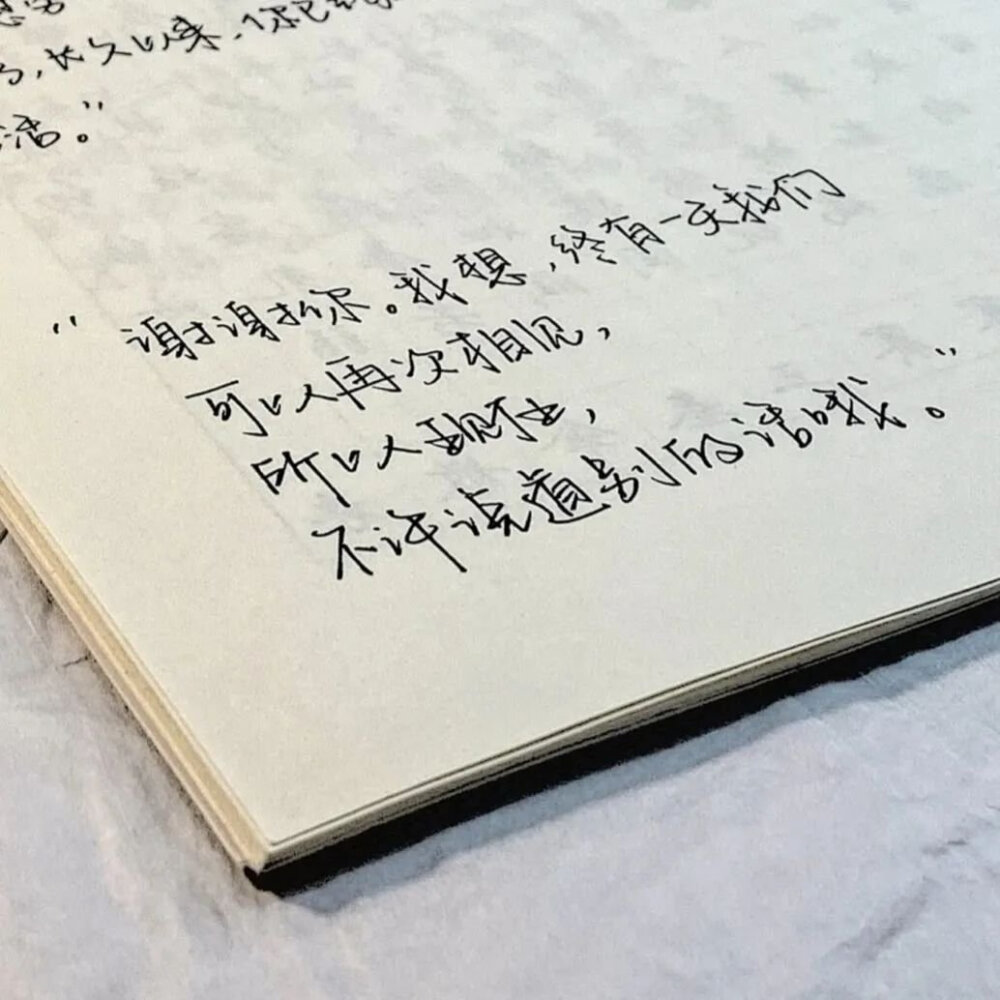 ,长久以来,你已经
活。”
“谢谢你。我想,终有一天我们
可以再次相见,
所以现在,
不许说道别的话哦。”